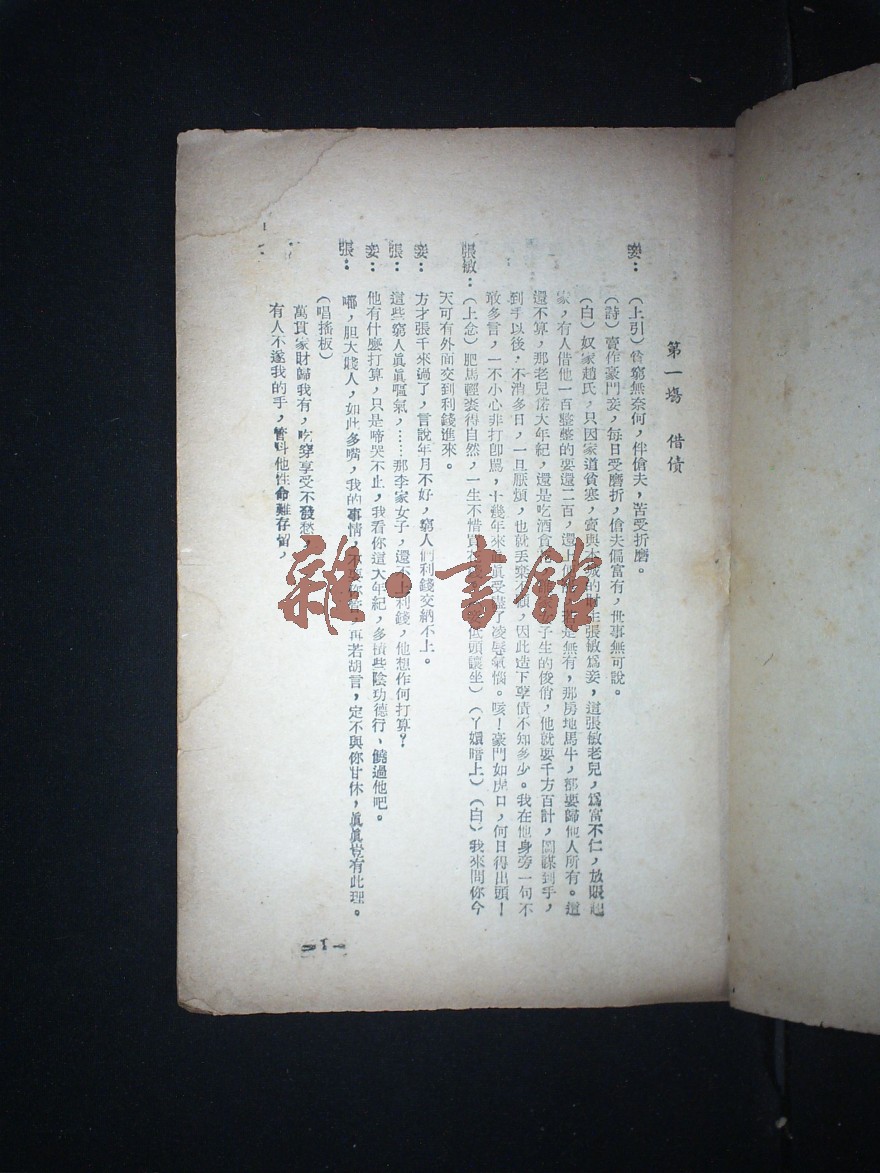 第一場 借債
妾：（上引）貧窮無奈何，伴傖夫，苦受折磨。
（詩）賣作豪門妾，每日受磨折，傖夫偏富有，世事無可說。
（白）奴家趙氏，只因家道貧寒，賣與本城的財主張敏爲妾，這張敏老兒，爲富不仁，放賬起
家，有人借他一百整整的要還二百，還上便罷，若是無有，那房地馬牛，都要歸他人所有。這
還不算，那老兒偌大年紀，還是吃酒食 子生的俊俏，他就要千方百計，圖謀到手，
到手以後，不消多日，一旦厭煩，也就丟棄不顧，因此造下孽債不知多少。我在他身旁一句不
敢多言，一不小心非打卽罵，十幾年來 眞受盡了凌辱氣惱。咳！豪門如虎口，何日得出頭！
張敏：（上念）肥馬輕裘得自然，一生不惜 低頭讓坐）（丫嬛暗上）（白）我來問你今
天可有外面交到利錢進來。
妾：方才張千來過了，言說年月不好，窮人們利錢交納不上。
張：這些窮人眞眞嘔氣，……那李家女子，還不上利錢，他想作何打算？
妾：他有什麼打算，只是啼哭不止，我看你這大年紀，多積些陰功德行、饒過他吧。
張：嘟，胆大賤人，如此多嘴，我的事情，不要你管，再若胡言，定不與你甘休，眞眞豈有此理。
（唱搖板）
萬貫家財歸我有，吃穿享受不發愁，
有人不遂我的手，管叫他性命難存留，
－1－
雜·書館